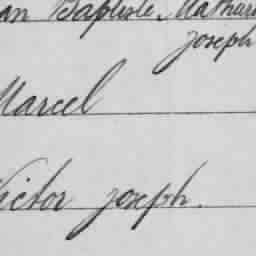 an Baptiste, Mathuri
Joseph
Marcel
Victor Joseph.